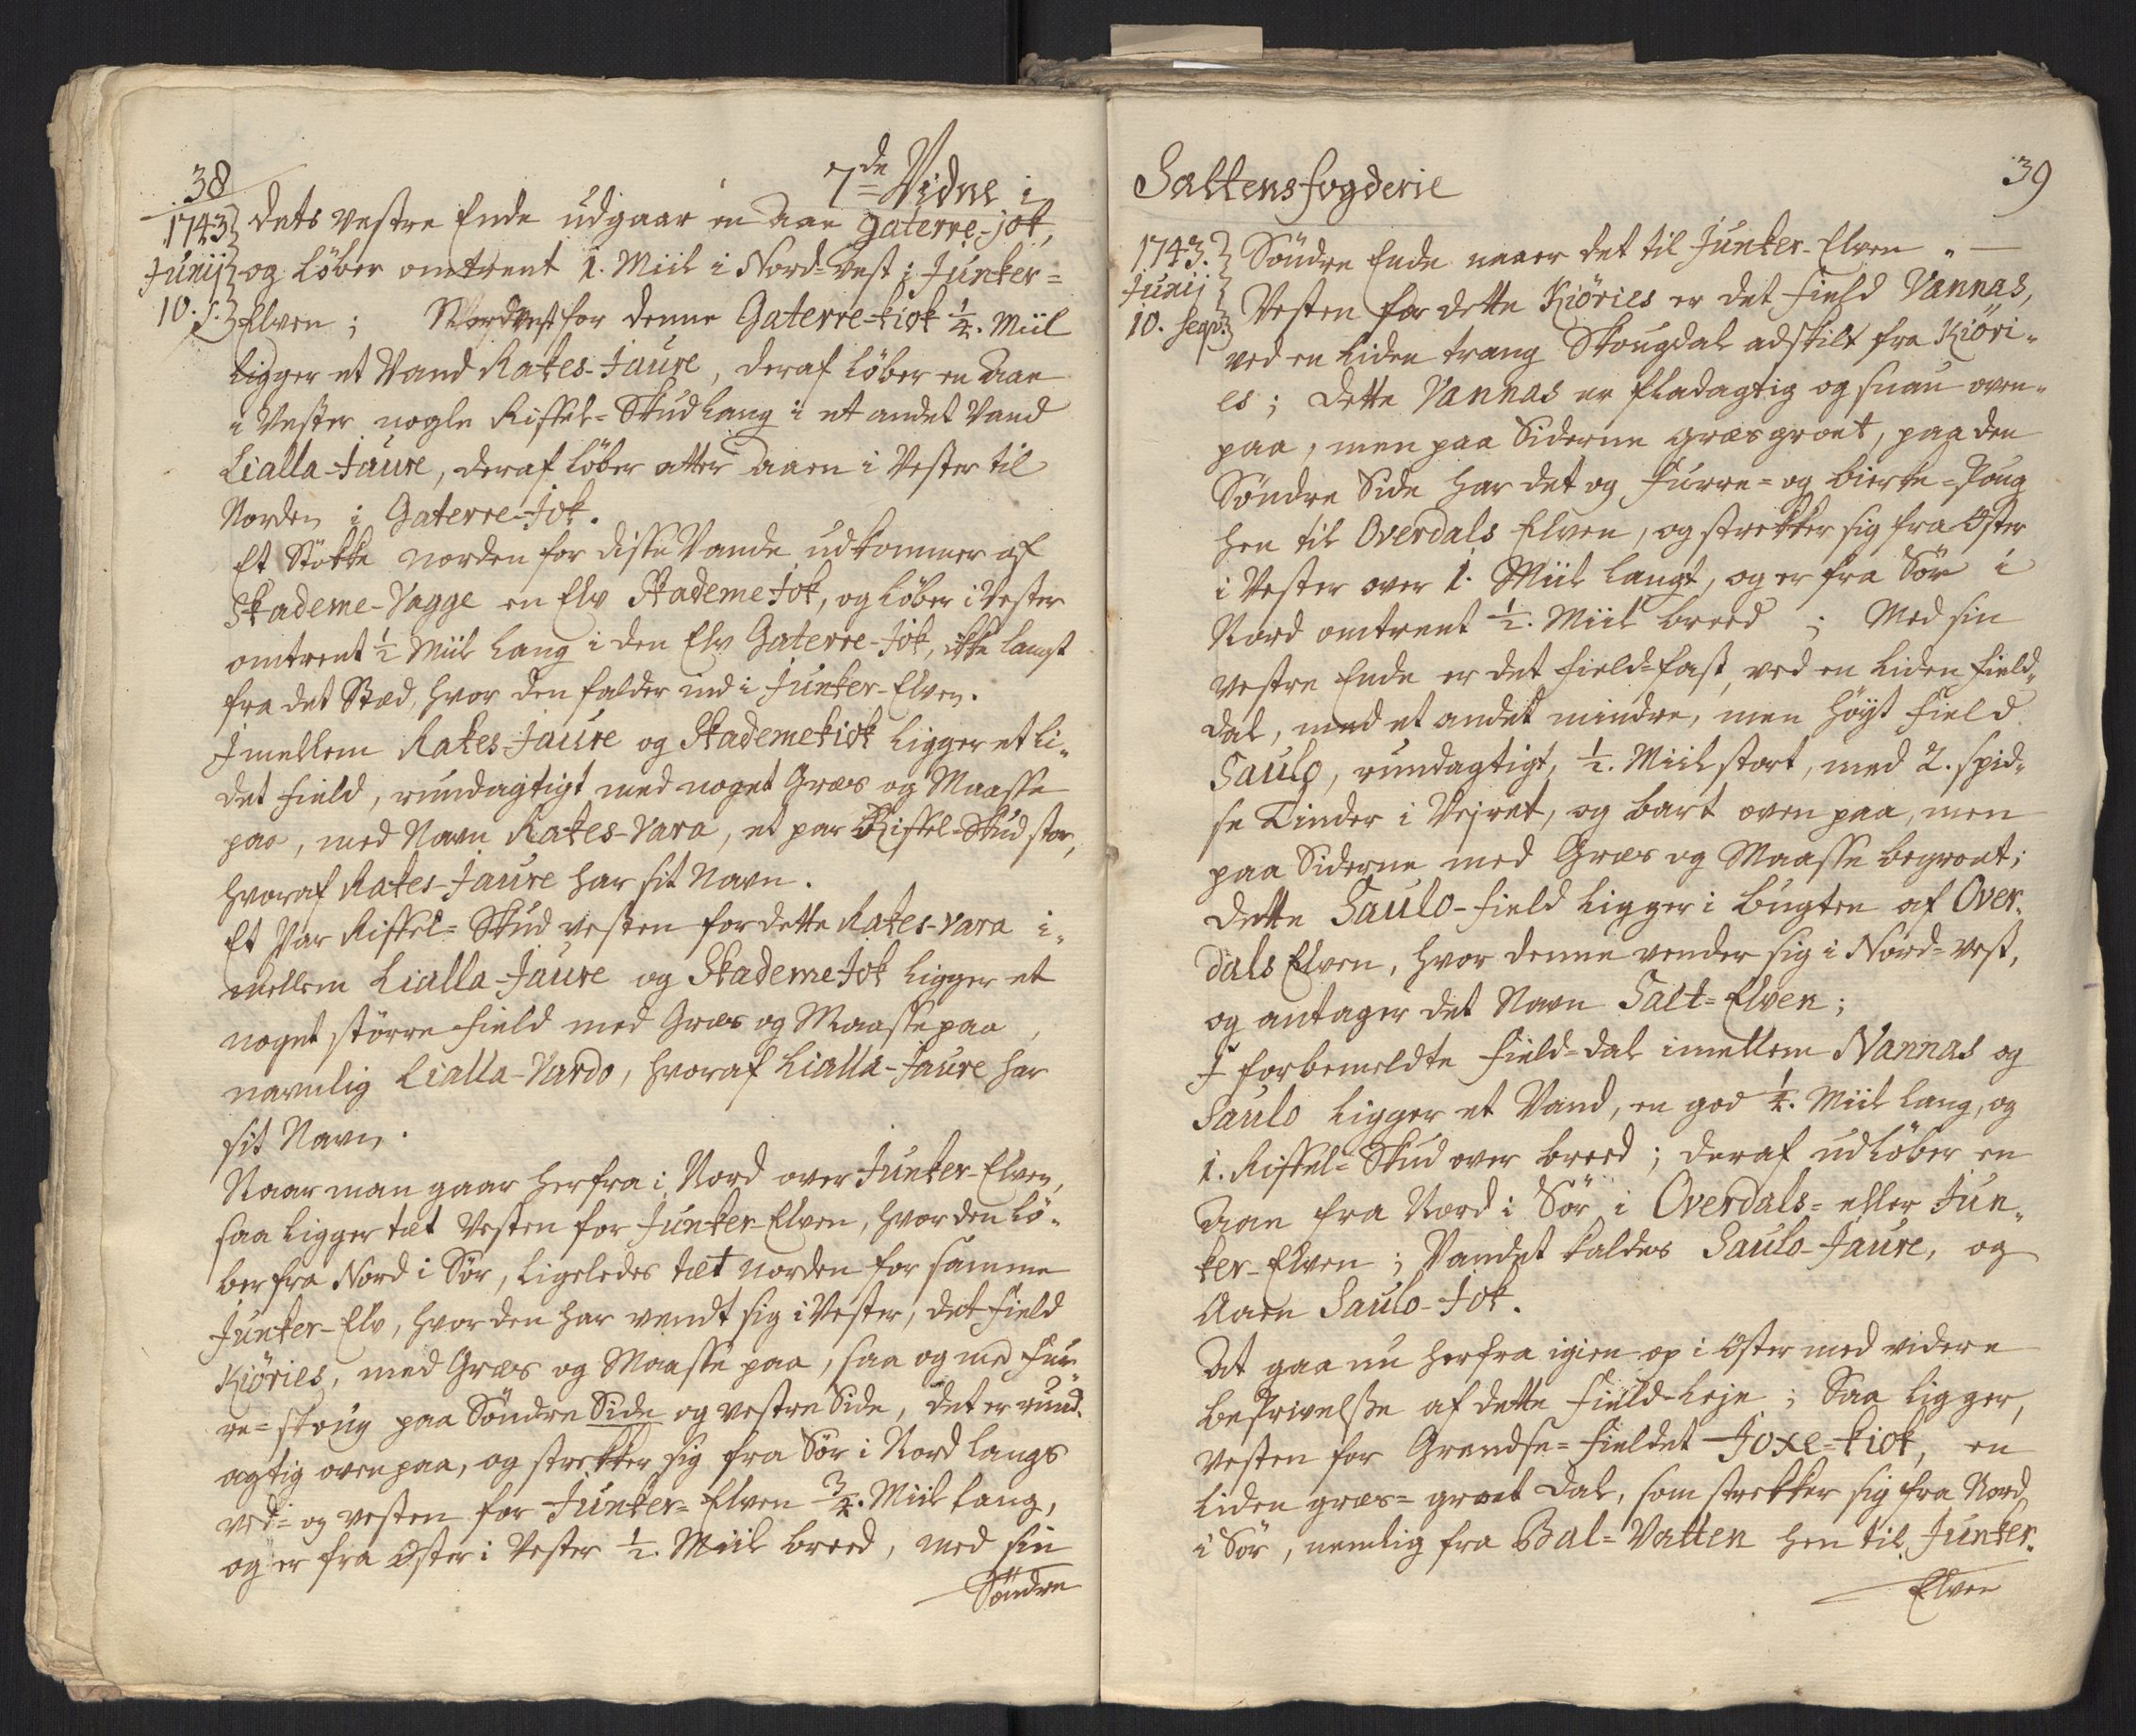 38
7de Vidne i
1743
Junij
10. f.
dets vestre Ende udgaar en Aae Gaterre-jok,
og løber omtrent 1. Miil i Nord-vest i Junker-
Elven; Nordvest for denne Gaterre-kiok 1/4. Miil
ligger et Vand Rakes-Jaure, deraf løber en Aae
i Vester nogle Riffel-Skud lang i et andet Vand
Lialla-Jaure, deraf løber atter Aaen i Vester til
Norden i Gaterre-Jok.
Et Støkke norden for disse Vande udkommer af
Skademe-Vagge en Elv Skademe Jok, og løber i Vester
omtrent 1/2 Miil lang i den Elv Gaterre-Jok, ikke langt
fra det Stæd, hvor den falder ind i Junker-Elven.
Imellem Rakes-Jaure og Skademekiok ligger et li-
det field, rundagtigt med noget Græs og Maasse
paa, med Navn Rakes-Vara, et par Riffel-Skud stor,
hvoraf Rakes-Jaure har sit Navn.
Et Par Riffel-Skud vesten for dette Rakes-vara i-
mellem Lialla-Jaure og Skademe Jok ligger et
noget større field med Græs og Maasse paa,
navnlig Lialla-Vardo, hvoraf Lialla-Jaure har
sit Navn.
Naar man gaar herfra i Nord over Junker-Elven,
saa ligger tæt Vesten for Junker-Elven, hvor den lø-
ber fra Nord i Sør, ligeledes tæt norden for samme
Junker-Elv, hvor den har vendt sig i Vester, det field
Kiöries, med Græs og Maasse paa, saa og med fur-
re-skoug paa Søndre Side og vestre Side, det er rund-
agtig oven paa, og strekker sig fra Sør i Nord langs
ved- og vesten for Junker-Elven 3/4. Miil lang,
og er fra Øster i Vester 1/2. Miil breed, med sin
Søndre
Saltens fogderie
39
1743.
Junij
10. seqv.
Søndre Ende naaer det til Junker-Elven.
Vesten for dette Kiöries er det field Vannas,
ved en liden trang Skougdal adskilt fra Kiöri-
es; Dette Vannas er fladagtig og snau oven-
paa, men paa Siderne græsgroet, paa den
Søndre Side har det og Furre- og bierke-skoug
hen til Overdals Elven, og strekker sig fra Øster
i Vester over 1. Miil langt, og er fra Sør i
Nord omtrent 1/2. Miil breed; Med sin
vestre Ende er det field-fast, ved en liden field-
dal, med et andet mindre, men høyt field
Saulo, rundagtigt, 1/2. Miil stort, med 2. spid-
se Tinder i Vejret, og bart oven paa, men
paa Siderne med Græs og Maasse begroet;
Dette Saulo-field ligger i bugten af Over-
dals Elven, hvor denne vender sig i Nord-vest,
og antager det Navn Salt-Elven;
I forbemeldte field-dal imellem Vannas og
Saulo ligger et Vand, en god 1/4. Miil lang, og
1. Riffel-Skud over breed; deraf udløber en
Aae fra Nord i Sør i Overdals- eller Jun-
ker-Elven; Vandet kaldes Saulo-Jaure, og
Aaen Saulo-Jok.
At gaa nu herfra igien op i Øster med videre
beskrivelse af dette field-leje; Saa ligger,
vesten for Grendse-fieldet Joxe-kiok, en
liden græs-groet dal, som strekker sig fra Nord
i Sør, nemlig fra Bal-Vatten hen til Junker-
Elven